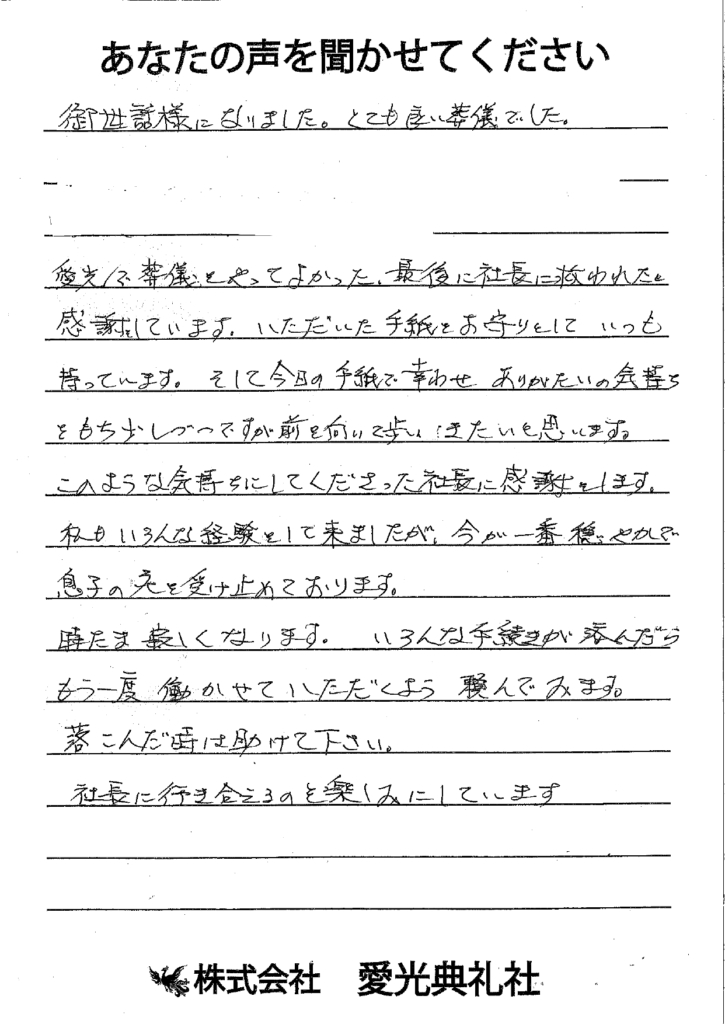 あなたの声を聞かせてください
御世話様になりました。とても良い葬儀でした。
愛光で葬儀をやってよかった、最後に社長に救われたと
感謝しています。いただいた手紙をお守りとして いつも
持っています。そして今日の手紙で幸わせ ありがたいの気持ち
をもち少しづつですが前を向いて歩いきたいと思います。
このような気持ちにしてくださった社長に感謝をします。
私もいろんな経験をして来ましたが、今が一番 穏やかで
息子の死を受け止めております。
時たま寂しくなります。 いろんな手続きが済んだら
もう一度 働かせていただくよう 頼んでみます。
落こんだ時は助けて下さい。
社長に行き合えるのを楽しみにしています
株式会社 愛光典礼社